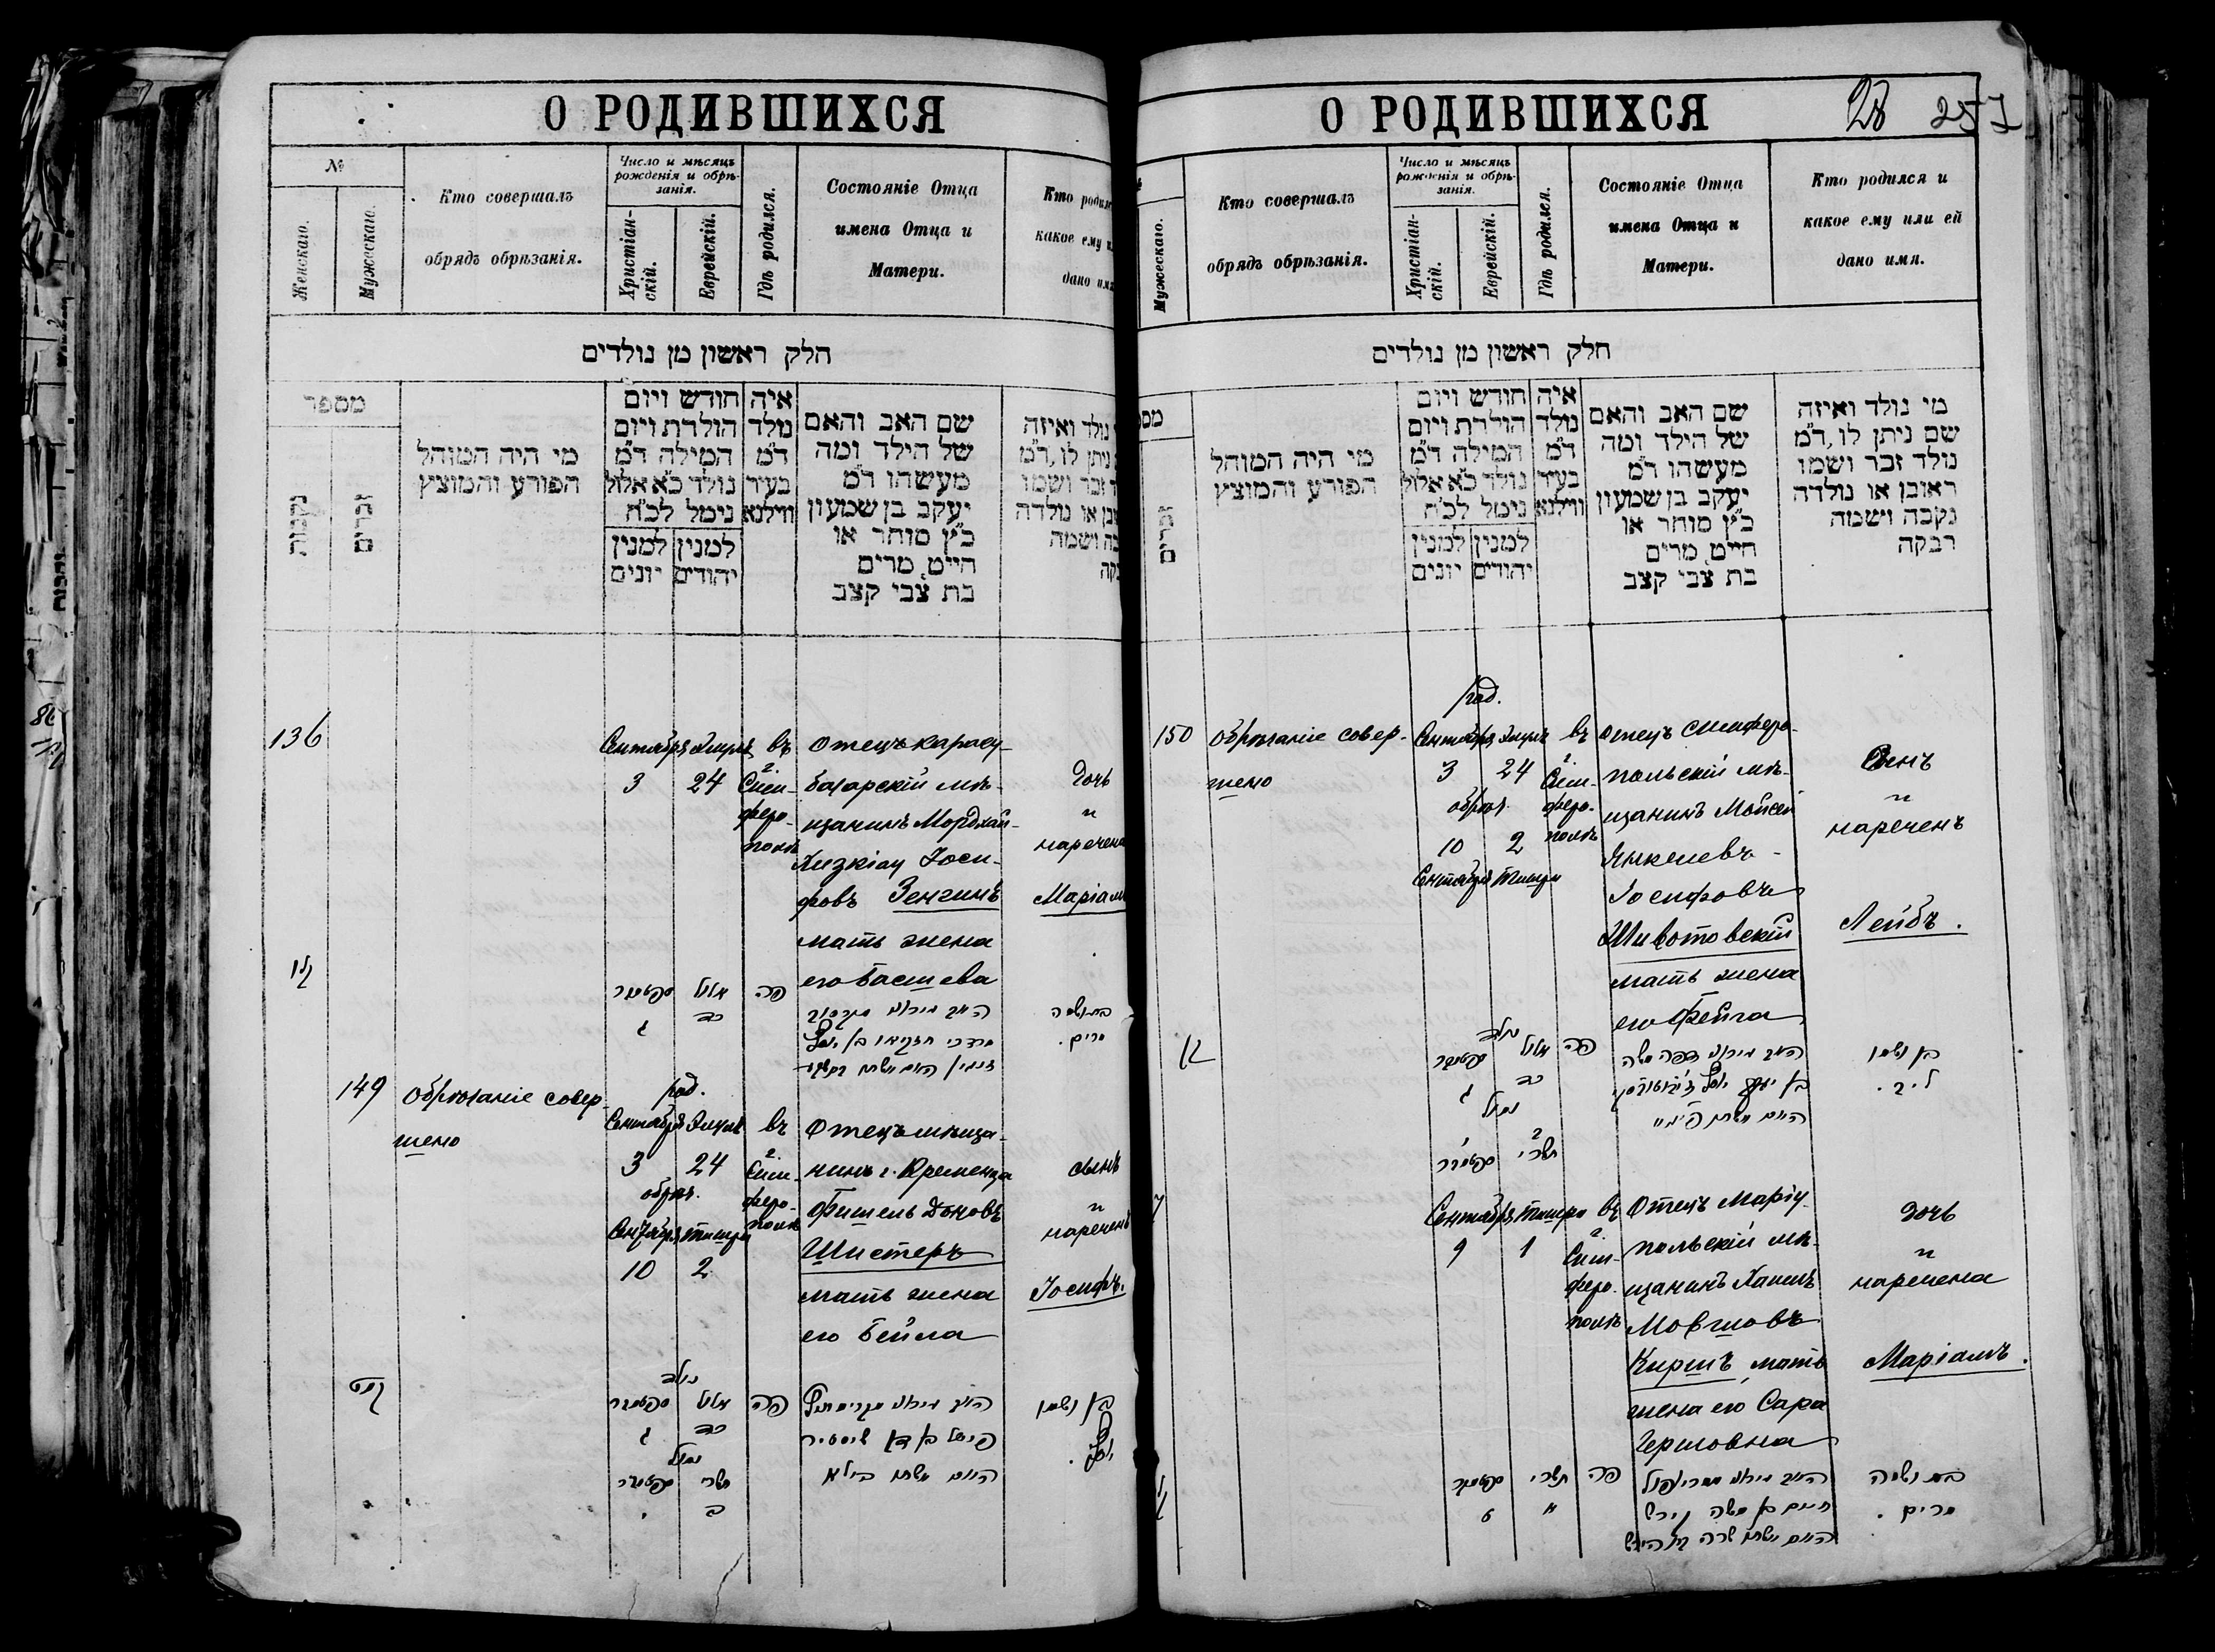 О РОДИВШИХСЯ
№
Женскаго.
Мужескаго.
Кто совершалъ
обрядъ обрѣзанія.
Число и мѣсяцъ
рожденія и обрѣ-
занія.
Христіан-
скій.
Еврейскій.
Гдѣ родился.
Состояніе Отца
имена Отца и
Матери.
Кто родилс
какое ему и
дано имя
חלק ראשון מן נולדים
מספר
נקבות
זכרים
מי היה המוהל
הפורע והמוצץ
חודש ויום
הולדת ויום
המילה ד״מ
נולד כ״א אלול
נימל לכ״ח
למנין יהודים
למנין יונים
איה
נולד
ד״מ
בעיר
ווילנא
שם האב והאם
של הילד ומה
מעשהו ד״מ
יעקב בן שמעון
כ״ץ סוחר או
חייט, מרים
בת צבי קצב
נולד ואיזה
ניתן לו, ד״מ
זכר ושמו
או נולדה
ושמה
136
Сентября Элула въ
3 24
г. Сим-
феро-
полѣ
Отецъ карасу-
базарскій мѣ-
щанинъ Мордхай-
Хизкіау Іоси-
фовъ Зенгинъ
мать жена
его Басшева
Дочь
и
наречена
Маріам
ספטמבר
אלול
פה
כד
ג
מרדכי חזקיהו בן יוסף
בת ושמה
מרים.
149
Обрѣзаніе совер-
шено
род.
Сентября Элула въ
3 24
обрѣз.
Сентября Тишри
10 2
г. Сим-
феро-
полѣ
Отецъ мѣща-
нинъ г. Кременца
Фишель Доновъ
Шистеръ
мать жена
его Бейла
сынъ
и
нареченъ
Іосифъ.
קמט
נולד
ספטמבר
אלול
פה
כד
ג
נמול
ספטמבר
תשרי
ב
י
פישל בן דן שיסטיר
ביילא
בן ושמו
יוסף.
О РОДИВШИХСЯ
28 257
Мужескаго.
Кто совершалъ
обрядъ обрѣзанія.
Число и мѣсяцъ
рожденія и обрѣ-
занія.
Христіан-
скій.
Еврейскій.
Гдѣ родился.
Состояніе Отца
имена Отца и
Матери.
Кто родился и
какое ему или ей
дано имя.
חלק ראשון מן נולדים
מס
זכרים
מי היה המוהל
הפורע והמוצץ
חודש ויום
הולדת ויום
המילה ד״מ
נולד כ״א אלול
נימל לכ״ח
למנין יהודים
למנין יונים
איה
נולד
ד״מ
בעיר
ווילנא
שם האב והאם
של הילד ומה
מעשהו ד״מ
יעקב בן שמעון
כ״ץ סוחר או
חייט, מרים
בת צבי קצב
מי נולד ואיזה
שם ניתן לו, ד״מ
נולד זכר ושמו
ראובן או נולדה
נקבה ושמה
רבקה
150
Обрѣзаніе совер-
шено
род.
Сентября Элула въ
3 24
обрѣз.
10 2
Сентября Тишри
г. Сим-
феро-
полѣ
Отецъ симферо-
польскій мѣ-
щанинъ Мойсей
Янкелевъ-
Іосифовъ
Животовскій
мать жена
его Фейга
Сынъ
и
нареченъ
Лейбъ.
קנ
נולד
ספטמבר
אלול
פה
כד
ג
נמול
ספטמבר
תשרי
בן ושמו
ליב.
Сентября Тишри въ
9 1
г. Сим-
феро-
полѣ
Отецъ Маріу-
польскій мѣ-
щанинъ Хаимъ
Мовшовъ
Киршъ, мать
жена его Сара
Гершовна
дочь
и
наречена
Маріамъ.
ספטמבר
תשרי
פה
א
ט
חיים בן משה קירש
בת ושמה
מרים.